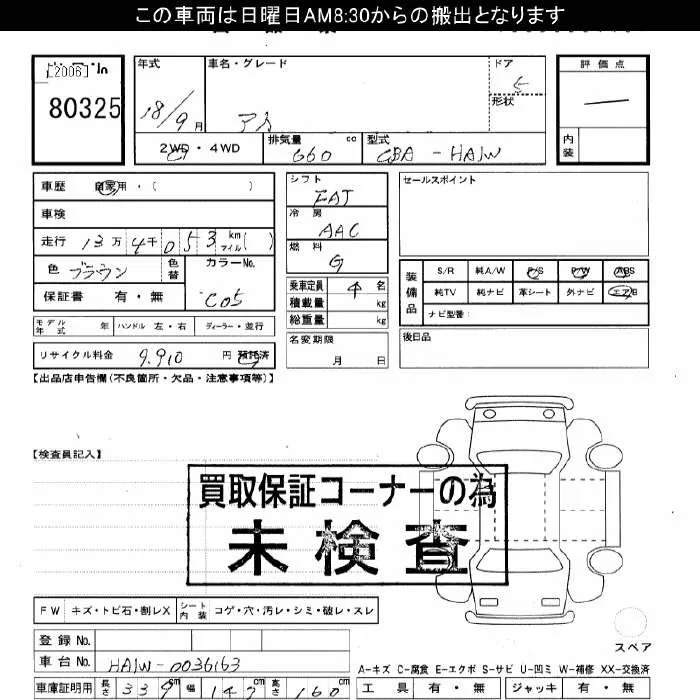 この車両は日曜日AM8:30からの搬出となります
[2006]
80325
年式
18/9月
車名・グレード
アイ
ドア
5
形状
評価点
内装
2WD・4WD
排気量
660 cc
型式
CBA - HA1W
車歴 自家用・( )
車検
走行 13万4千053 km マイル ( )
色 ブラウン 色替
カラーNo.
C05
保証書 有・無
モデル年式 年 ハンドル 左・右 ディーラー・並行
リサイクル料金 9.910 円 預託済
シフト
FAT
冷房
AAC
燃料
G
乗車定員 4 名
積載量 kg
総重量 kg
名変期限
月 日
セールスポイント
装備品
S/R 純A/W P/S P/W ABS
純TV 純ナビ 革シート 外ナビ エアB
ナビ型番:
後日品
【出品店申告欄(不良箇所・欠品・注意事項等)】
【検査員記入】
買取保証コーナーの為
未検査
FW キズ・トビ石・割レX シート内装 コゲ・穴・汚レ・シミ・破レ・スレ
スペア
登録No.
車台No. HA1W-0036163
A-キズ C-腐食 E-エクボ S-サビ U-凹ミ W-補修 XX-交換済
車庫証明用 長さ 339cm 幅 147cm 高さ 160cm
工具 有・無 ジャッキ 有・無